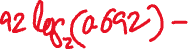 92 log₂(0.692) -